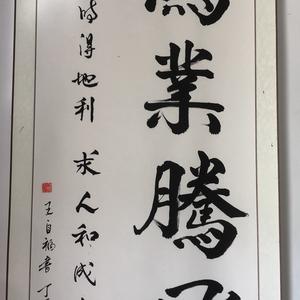 業騰飛
時得地利 求人和成
王自福書 丁